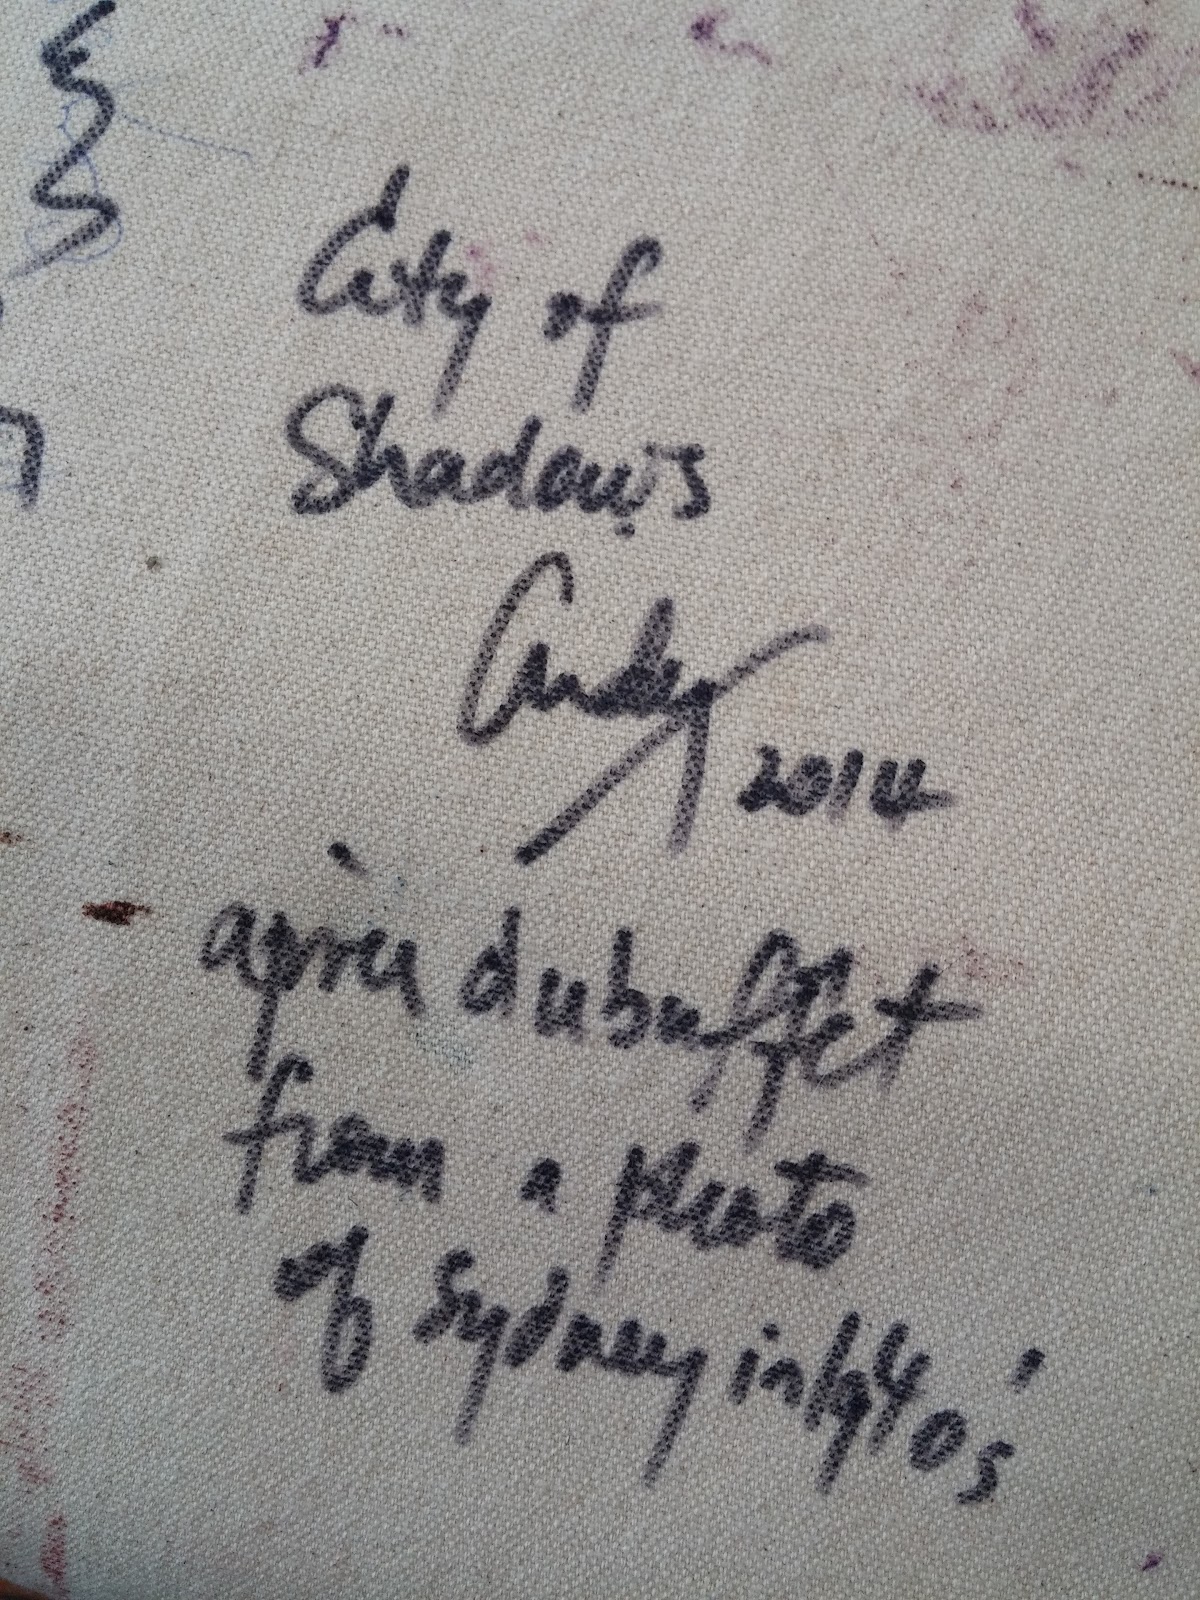 City of
Shadows
Andy
2014
aprés dubuffet
from a photo
of Sydney in 1940s'